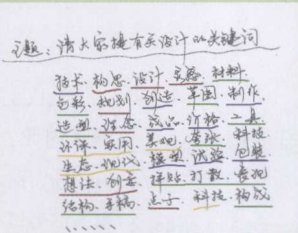 主题：请大家提有关设计的关键词
技术、构思、设计、灵感、材料
色彩、规划、创造、草图、制作
造型、理念、成品、价格、工具
环保、实用、美观、科技
生态、现代、模型、试验、包装
想法、创意、拼贴、打散、表现
结构、手稿、点子、科技、构成
……